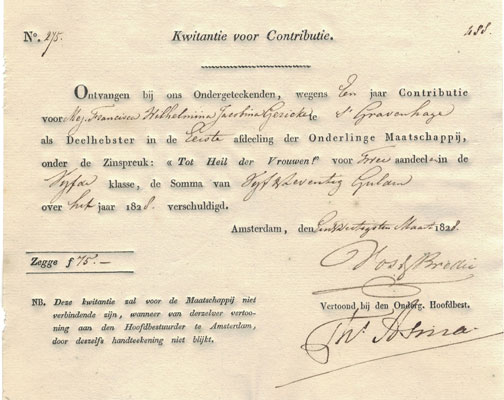 N°. 275. Kwitantie voor Contributie. 488.
Ontvangen bij ons Ondergeteekenden, wegens Een jaar Contributie
voor Mej. Francisca Wilhelmina Jacobina Gericke te 's Gravenhage
als Deelhebster in de Eerste afdeeling der Onderlinge Maatschappij,
onder de Zinspreuk: « Tot Heil der Vrouwen!" voor Twee aandeelen in de
Vyfde klasse, de Somma van Vyf & Seventig Gulden
over het jaar 1828. verschuldigd.
Amsterdam, den Een & dertigsten Maart 1828.
Zegge ƒ 75.—
Vos & Bredie
NB. Deze kwitantie zal voor de Maatschappij niet
verbindende zijn, wanneer van derzelver vertoo-
ning aan den Hoofdbestuurder te Amsterdam,
door deszelfs handteekening niet blijkt.
Vertoond, bij den Onderg. Hoofdbest.